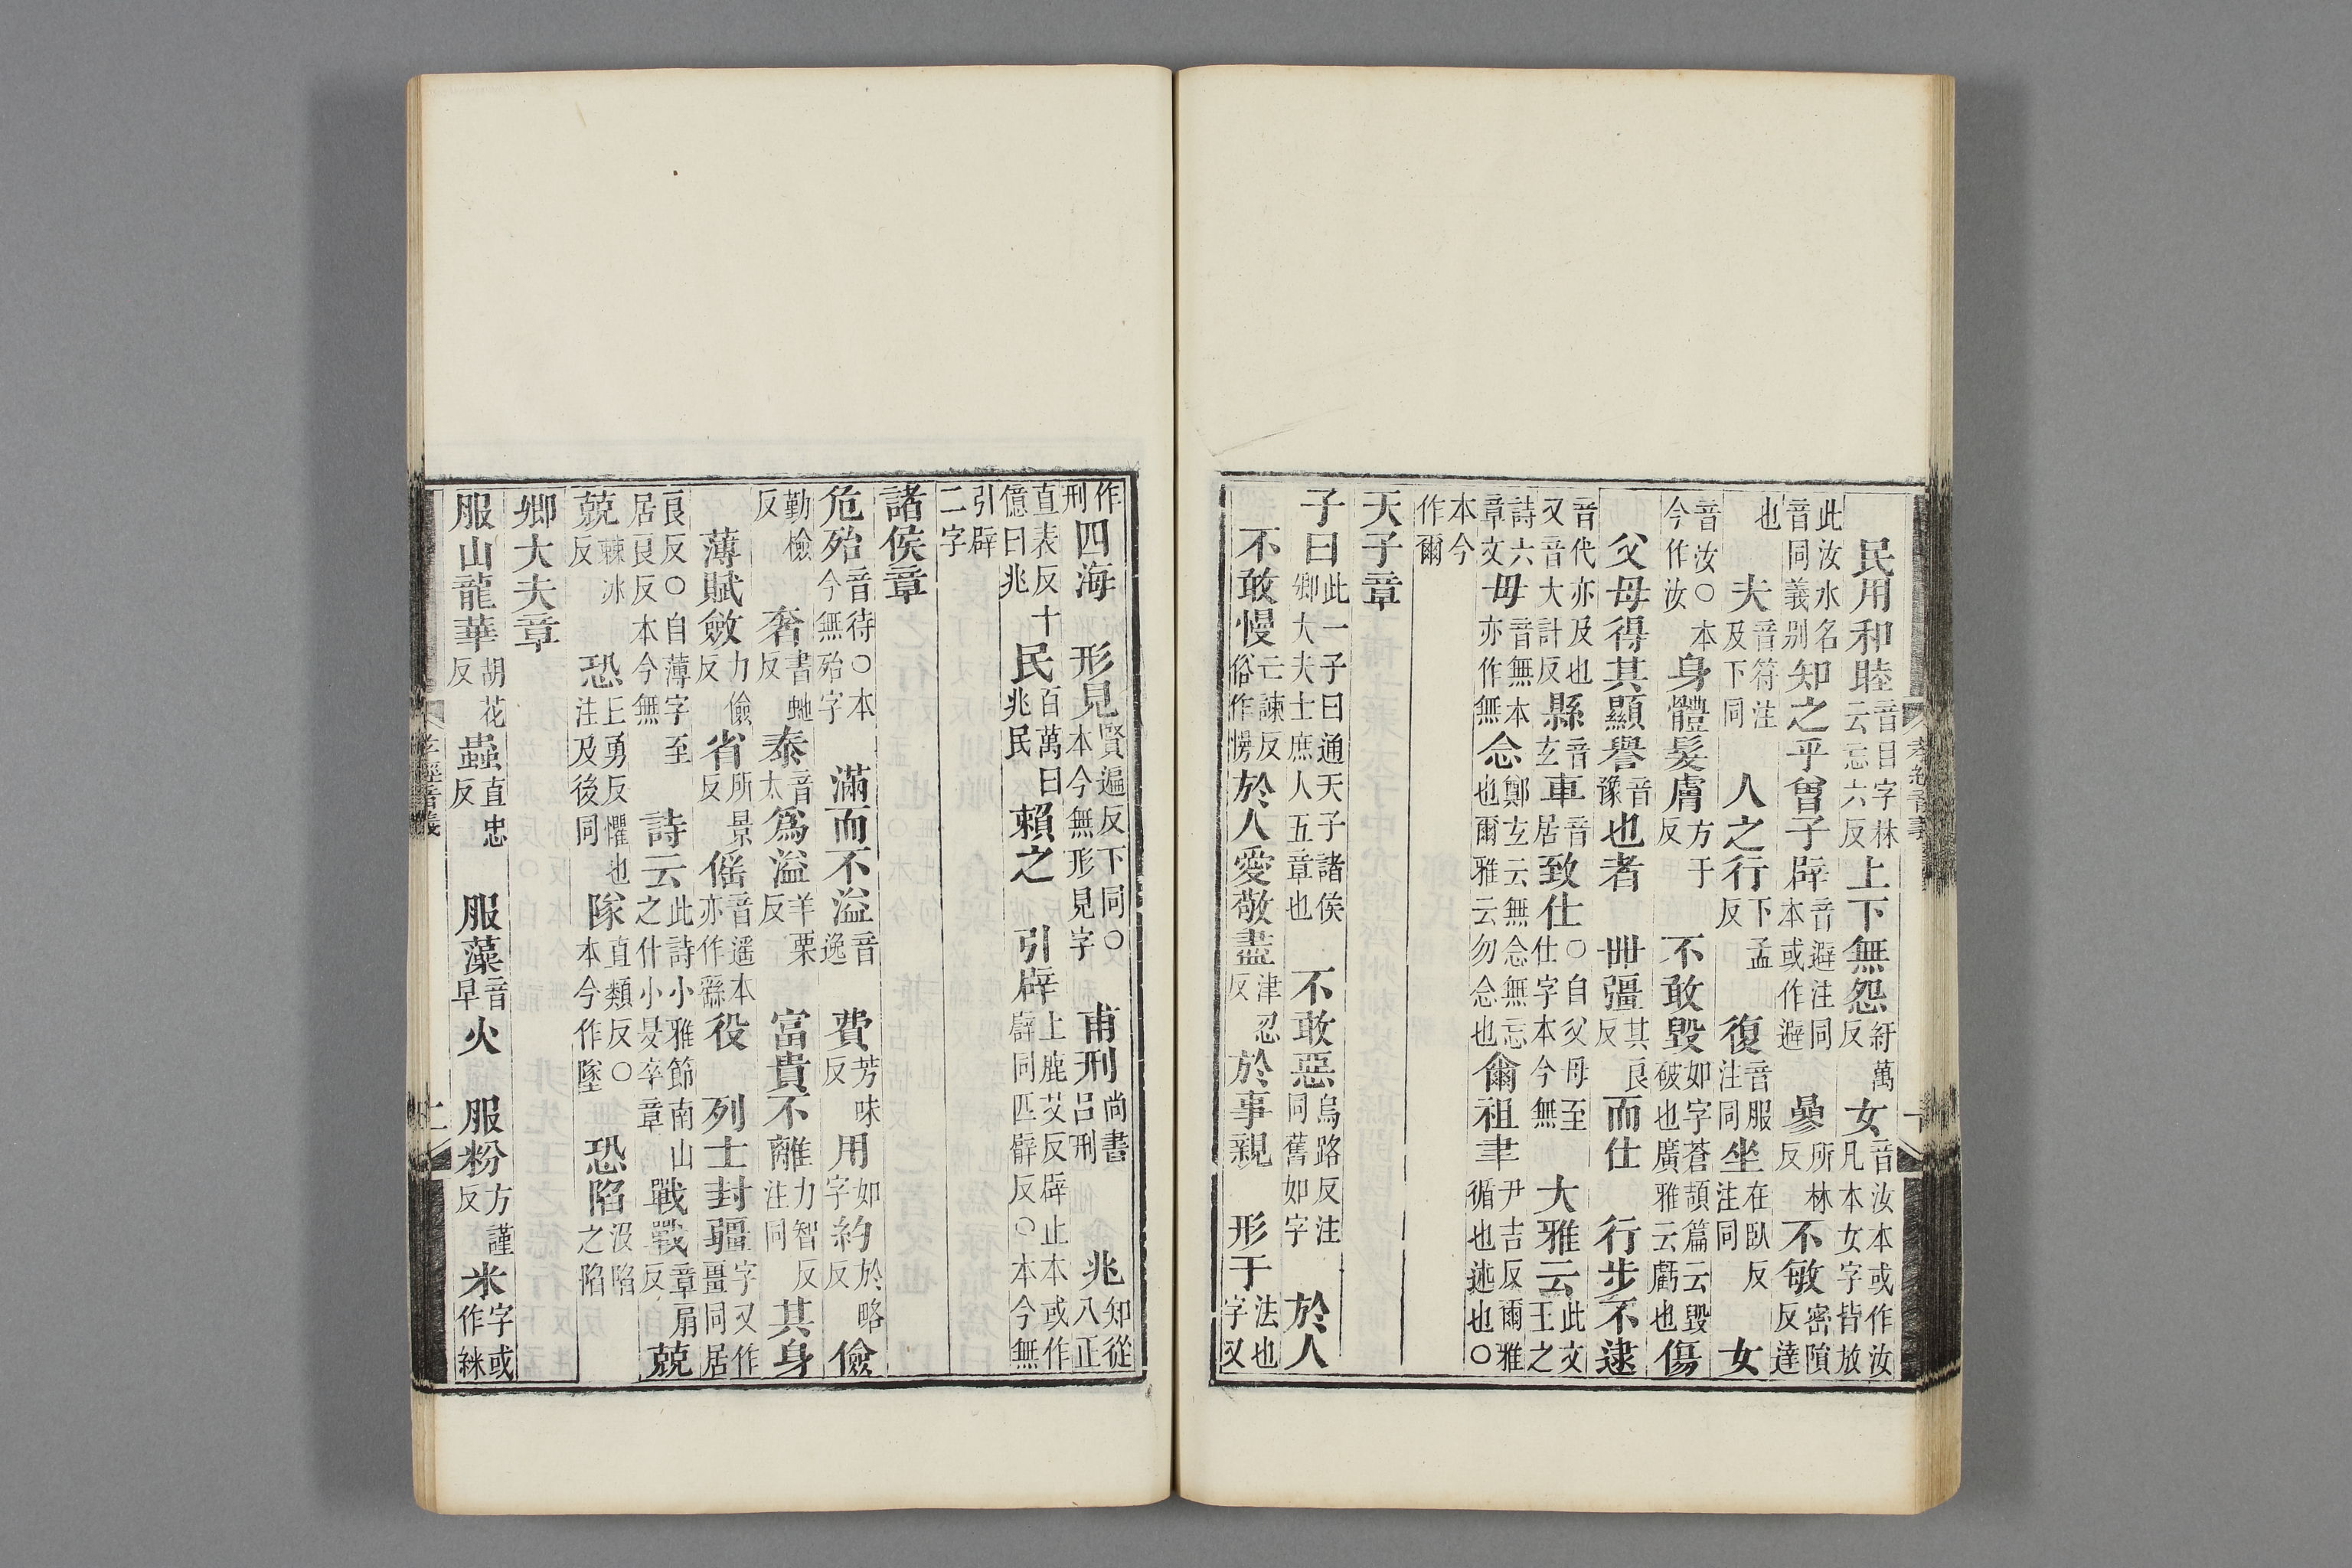 民用和睦音目字林云忘六反上下無怨紆萬反女音汝本或作汝凡本女字皆放
此汝水名音同義別知之乎曾子辟音避注同本或作避參所林反不敏密隕反達
也夫音符注及下同人之行下孟反復音服注同坐在臥反注同女
音汝○本今作汝身體髮膚方于反不敢毀如字蒼頡篇云毀破也廣雅云虧也傷
父母得其顯譽音豫也者卌彊其良反而仕行步不逮
音代亦及也又音大計反縣音玄車音居致仕○自父母至仕字本今無大雅云此文王之
詩六章文毋音無本亦作無念鄭玄云無念無忘也爾雅云勿念也爾祖聿尹吉反爾雅循也述也○
本今作爾
天子章
子曰此一子曰通天子諸侯卿大夫士庶人五章也不敢惡烏路反注同舊如字於人
不敢慢亡諫反俗作愣於人愛敬盡津忍反於事親形于法也字又
作刑四海形見賢遍反下同○本今無形見字甫刑尚書呂刑兆知從八正
直表反億曰兆十民百萬曰兆民賴之引辟上鹿艾反辟止本或作譬同匹臂反○本今無
引辟二字
諸侯章
危殆音待○本今無殆字滿而不溢音逸費芳味反用如字約於略反儉
勤檢反奢書虵反泰音太為溢羊栗反富貴不離力智反注同其身
薄賦斂力儉反省所景反傜音遥本亦作繇役列士封疆字又作畺同居
良反○自薄字至居良反本今無詩云此詩小雅節南山之什小旻卒章戰戰章扇反兢
兢棘冰反恐丘勇反懼也注及後同隊直類反○本今作墜恐陷沒陷之陷
卿大夫章
服山龍華胡花反蟲直忠反服藻音早火服粉方謹反米字或作絲
孝經音義
孝經音義
二